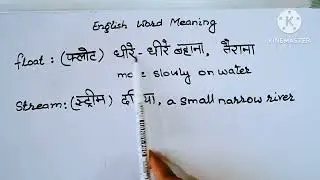 English Word Meaning
KINEMASTER
float: (फ्लोट) धीरे-धीरे बहाना, तैराना
move slowly on water
Stream: (स्ट्रीम) a small narrow river